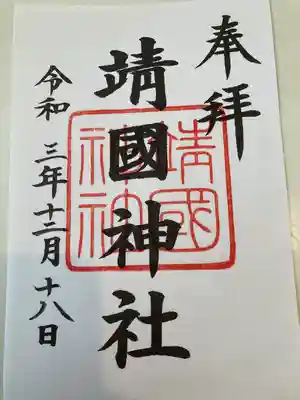 奉拝
靖國神社
靖國
神社
令和 三年 十二月 十八日